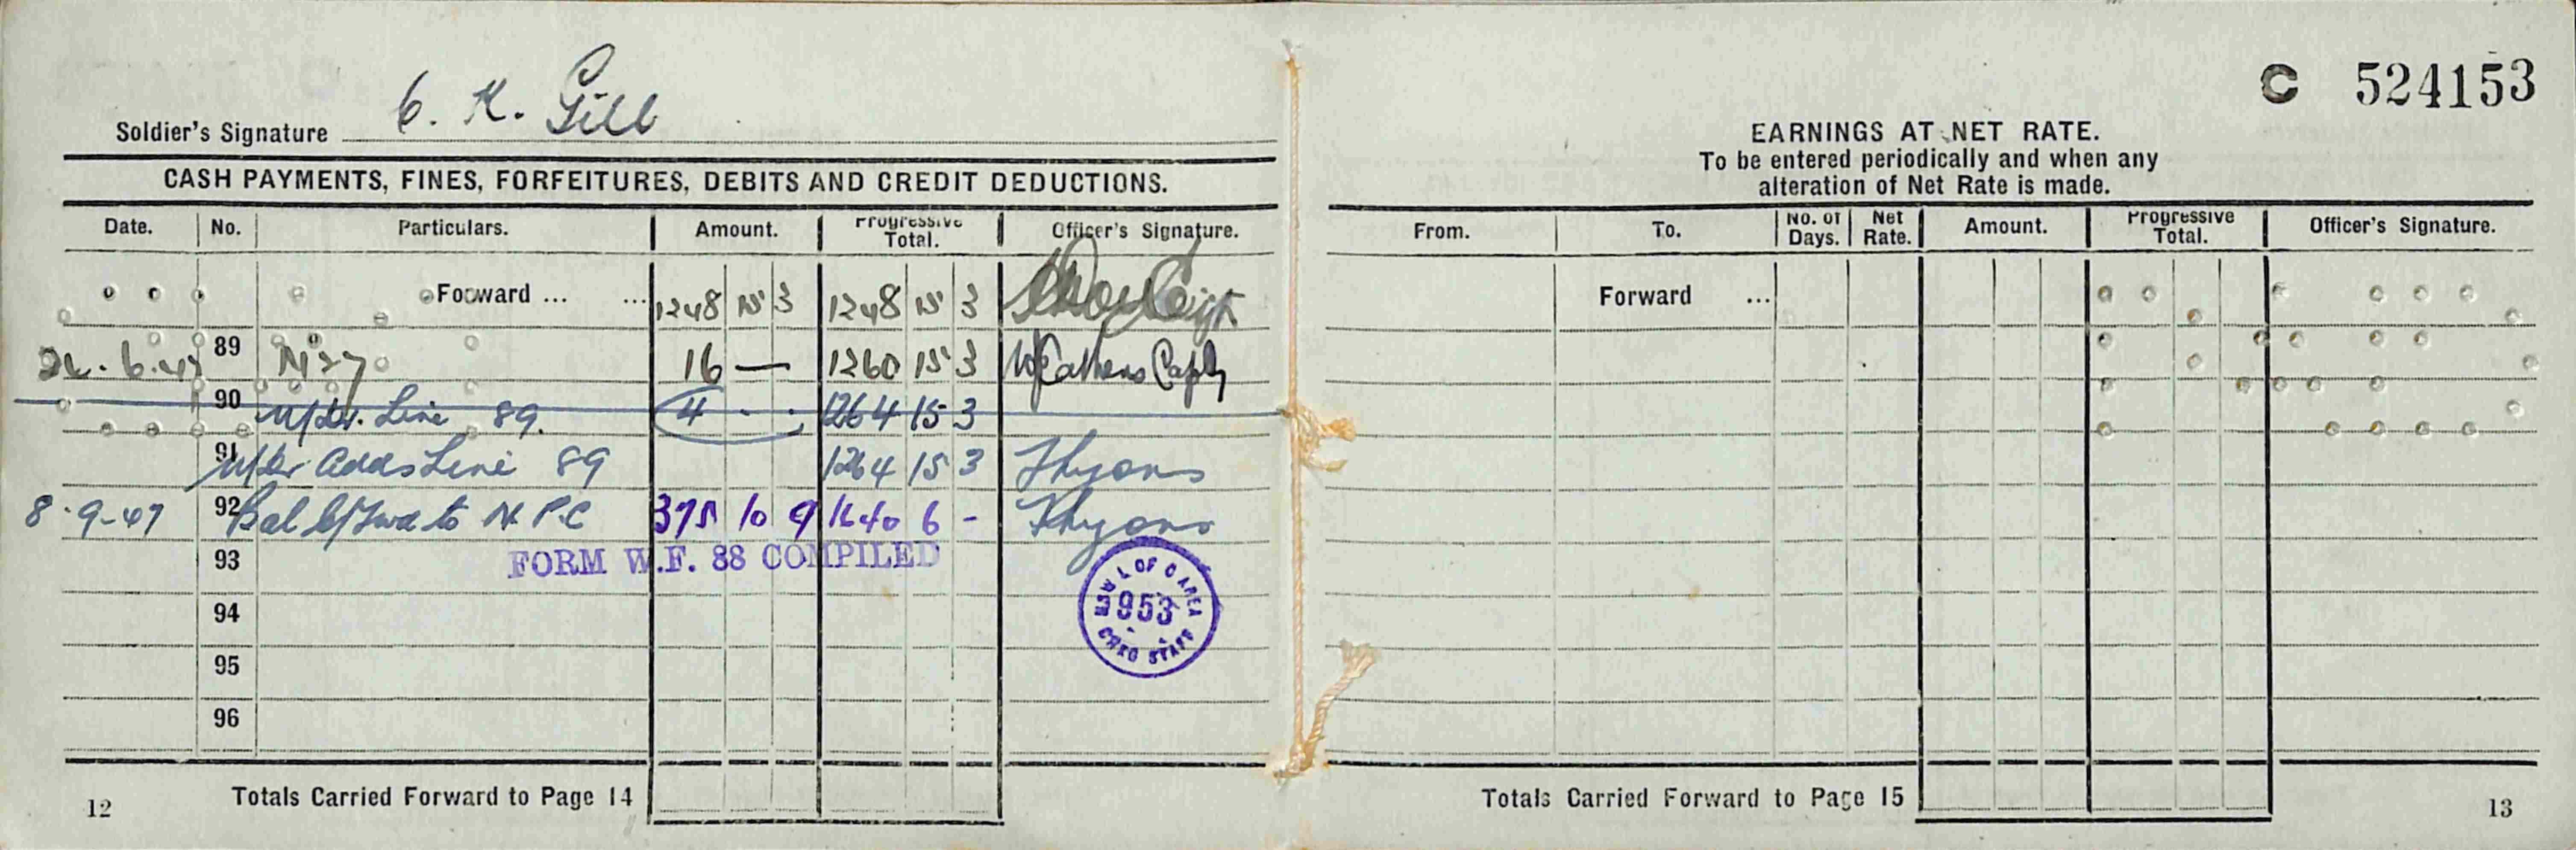 Soldier's Signature C. K. Gill
CASH PAYMENTS, FINES, FORFEITURES, DEBITS AND CREDIT DEDUCTIONS.
Date. No. Particulars. Amount. Progressive Total. Officer's Signature.
Forward ... ... 1248 15 3 1248 15 3
26. 6. 47 89 N27 16 — 1260 15 3
90 Line 89. 4 - . 1264 15 3
91 Adds Line 89 1264 15 3
8.9-47 92 Bal b/fwd to N.P.C 375 10 9 1640 6 -
93 FORM W.F. 88 COMPILED
953
94
95
96
Totals Carried Forward to Page 14
12
C 524153
EARNINGS AT NET RATE.
To be entered periodically and when any
alteration of Net Rate is made.
From. To. No. of Days. Net Rate. Amount. Progressive Total. Officer's Signature.
Forward ...
Totals Carried Forward to Page 15
13